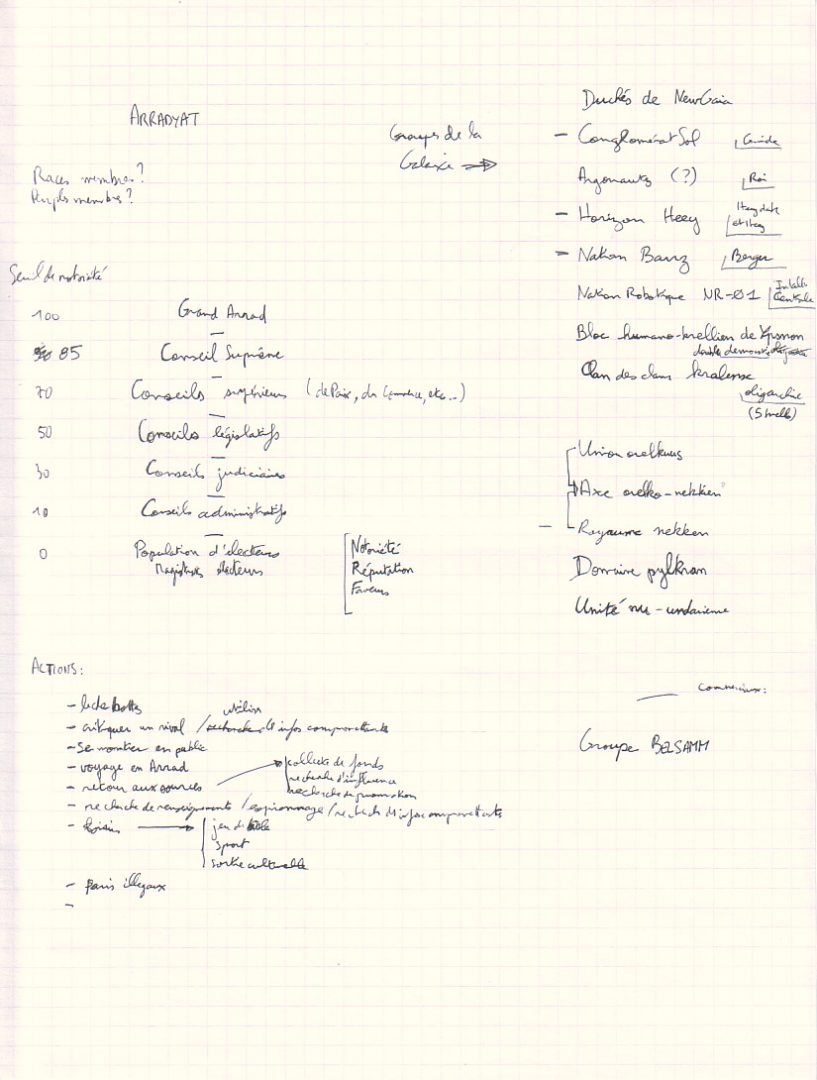 ARRADYAT
Races membres?
Peuples membres?
Groupes de la
Galaxie
Seuil de notoriété
100 Grand Arrad
85 Conseil Suprême
70 Conseils supérieurs (de Paix, du Commerce, etc...)
50 Conseils législatifs
30 Conseils judiciaires
10 Conseils administratifs
0 Population d'électeurs
Magistrats électeurs
Notoriété
Réputation
Faveurs
Duchés de NewGaia
- Conglomérat Sol Guide
Argonauts (?) Roi
- Horizon Heey
- Nakon Banz Berger
Nakon Robotique NR-Ø1 Centrale
Bloc humano-krellien de
double
Clan des clans kralense
oligarchie
Union orelkuus
Axe orelko-nekkien
- Royaume nekken
Domaine pylkran
Unité nu-undarienne
commerciaux:
Groupe BELSAMM
ACTIONS:
- lèche bottes
utiliser
- critiquer un rival / recherche d'infos compromettantes
- Se montrer en public
- voyage en Arrad
- retour aux sources
collecte de fonds
recherche d'influence
recherche de promotion
- recherche de renseignements / espionnage / recherche d'infos compromettantes
- loisirs
jeu de
sport
sortie culturelle
- paris illégaux
-